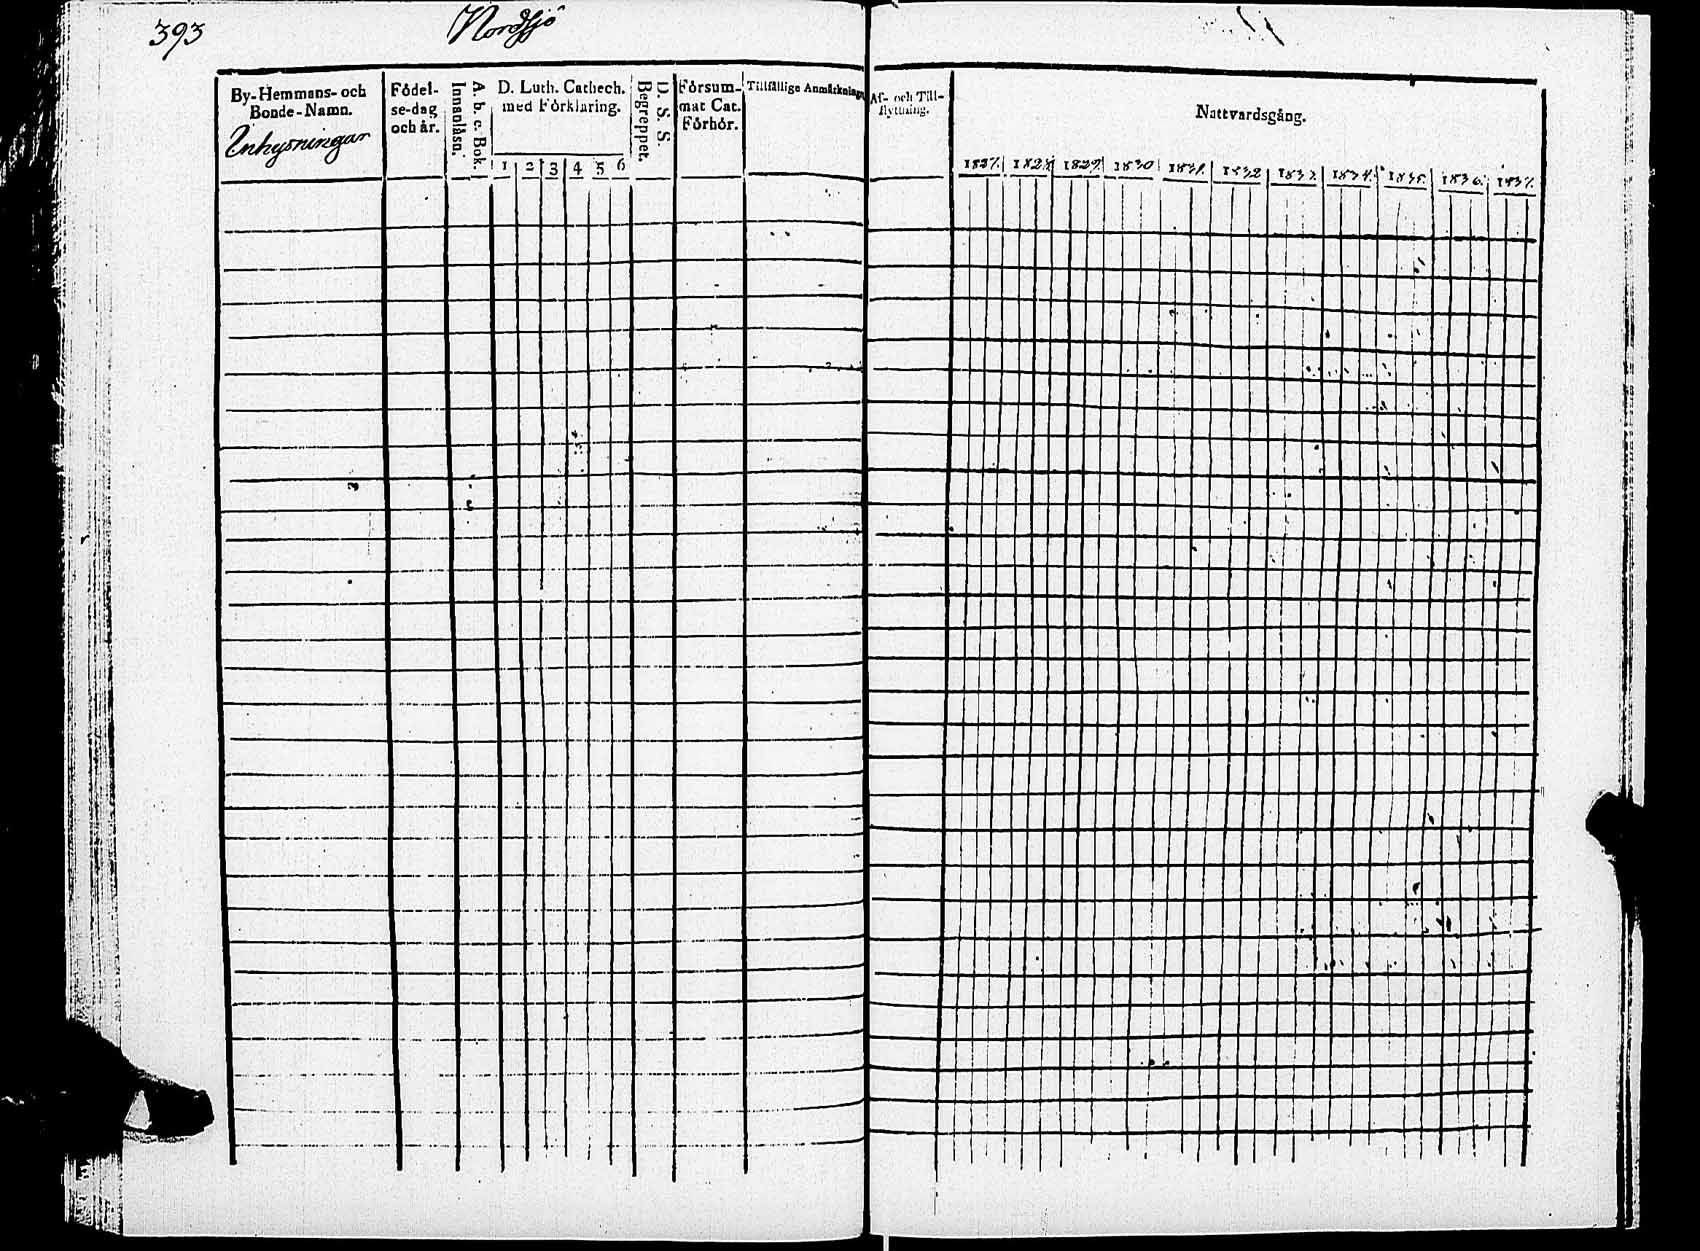 393
Nordsjö
By-Hemmans- och
Bonde-Namn.
Inhysningar
Födel-
se-dag
och år.
Innanläsn.
A. b. c. Bok.
D. Luth. Cathech.
med Förklaring.
1 2 3 4 5 6
Begreppet.
D. S. S.
Försum-
mat Cat.
Förhör.
Tillfällige Anmärkning
Af- och Till-
flyttning.
Nattvardsgång.
1827. 1828. 1829. 1830 1831. 1832 1833. 1834. 1835. 1836. 1837.